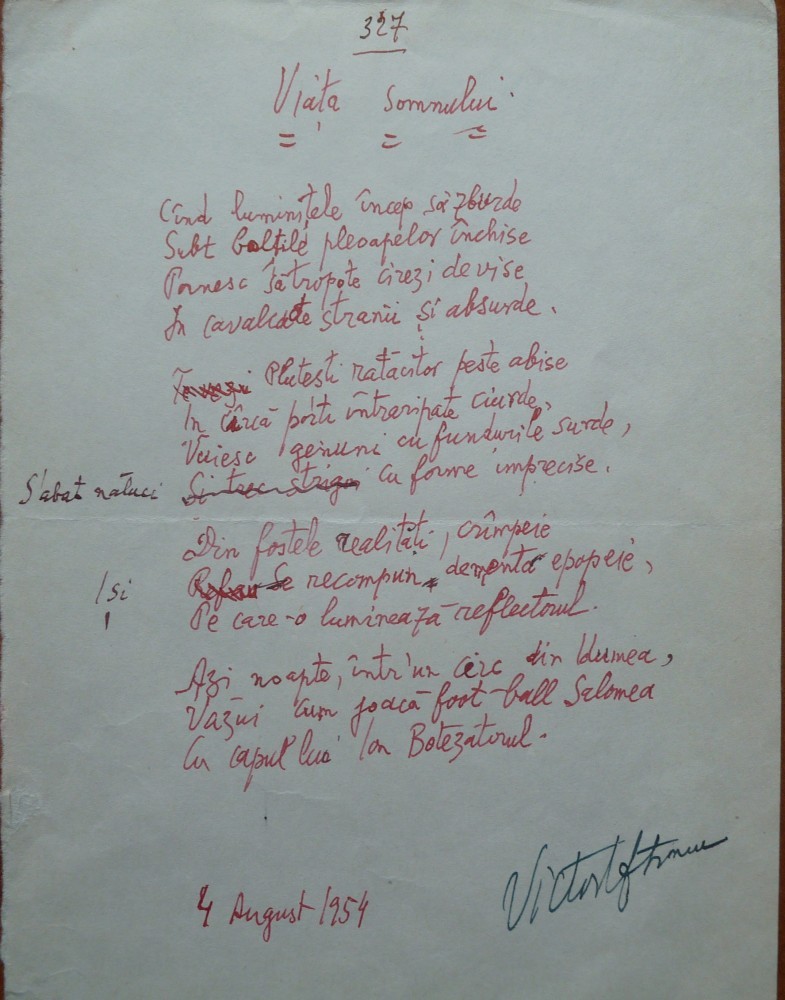 327
Viața Somnului
Cînd luminițele încep să zburde
Subt bolțile pleoapelor închise
Pornesc să tropote cirezi de vise
În cavalcade stranii și absurde.
Plutești rătăcitor peste abise
În cîrcă porți întraripate ciurde,
Vuiesc genuni cu fundurile surde,
S'abat năluci Și trec strigoi cu forme imprecise.
Din fostele realități, crîmpeie
/și Se recompun dementa epopeie,
Pe care-o luminează reflectorul.
Azi noapte, într'un circ din Idumea,
Văzui cum joacă foot-ball Salomea
Cu capul lui Ion Botezatorul.
4 August 1954
Victor Eftimiu